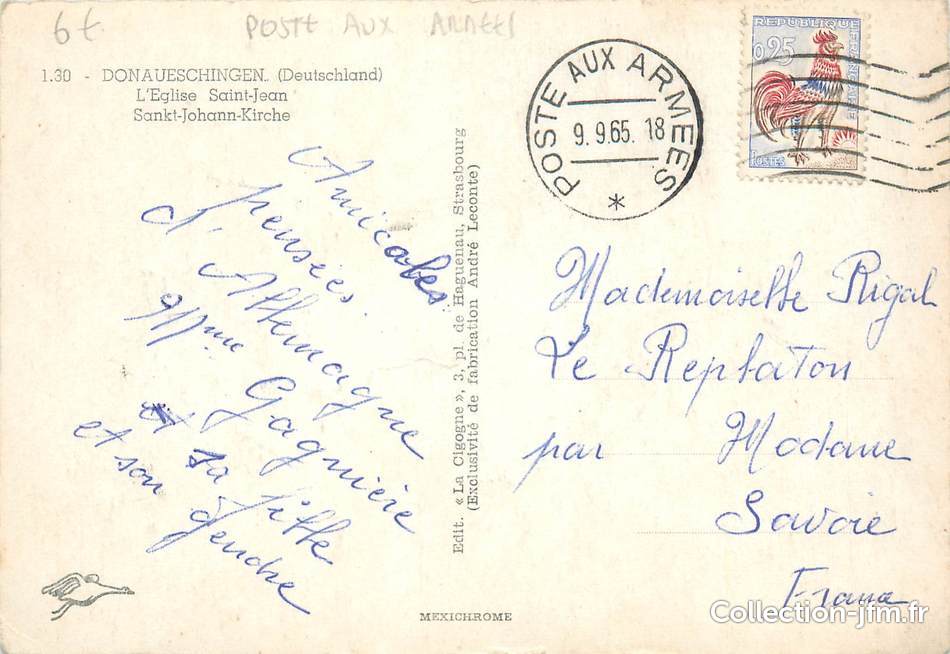 6€ POSTE AUX ARMEES
1.30 - DONAUESCHINGEN. (Deutschland)
L'Eglise Saint-Jean
Sankt-Johann-Kirche
POSTE AUX ARMEES
9.9.65. 18
*
REPUBLIQUE
FRANÇAISE
0,25
POSTES
Amicales
pensées
d'Allemagne
Mme Gagnière
et sa fille
et son gendre
Edit. «La Cigogne», 3, pl. de Haguenau, Strasbourg
(Exclusivité de fabrication André Leconte)
Mademoiselle Rigal
Le Replaton
par Modane
Savoie
France
MEXICHROME
Collection-jfm.fr